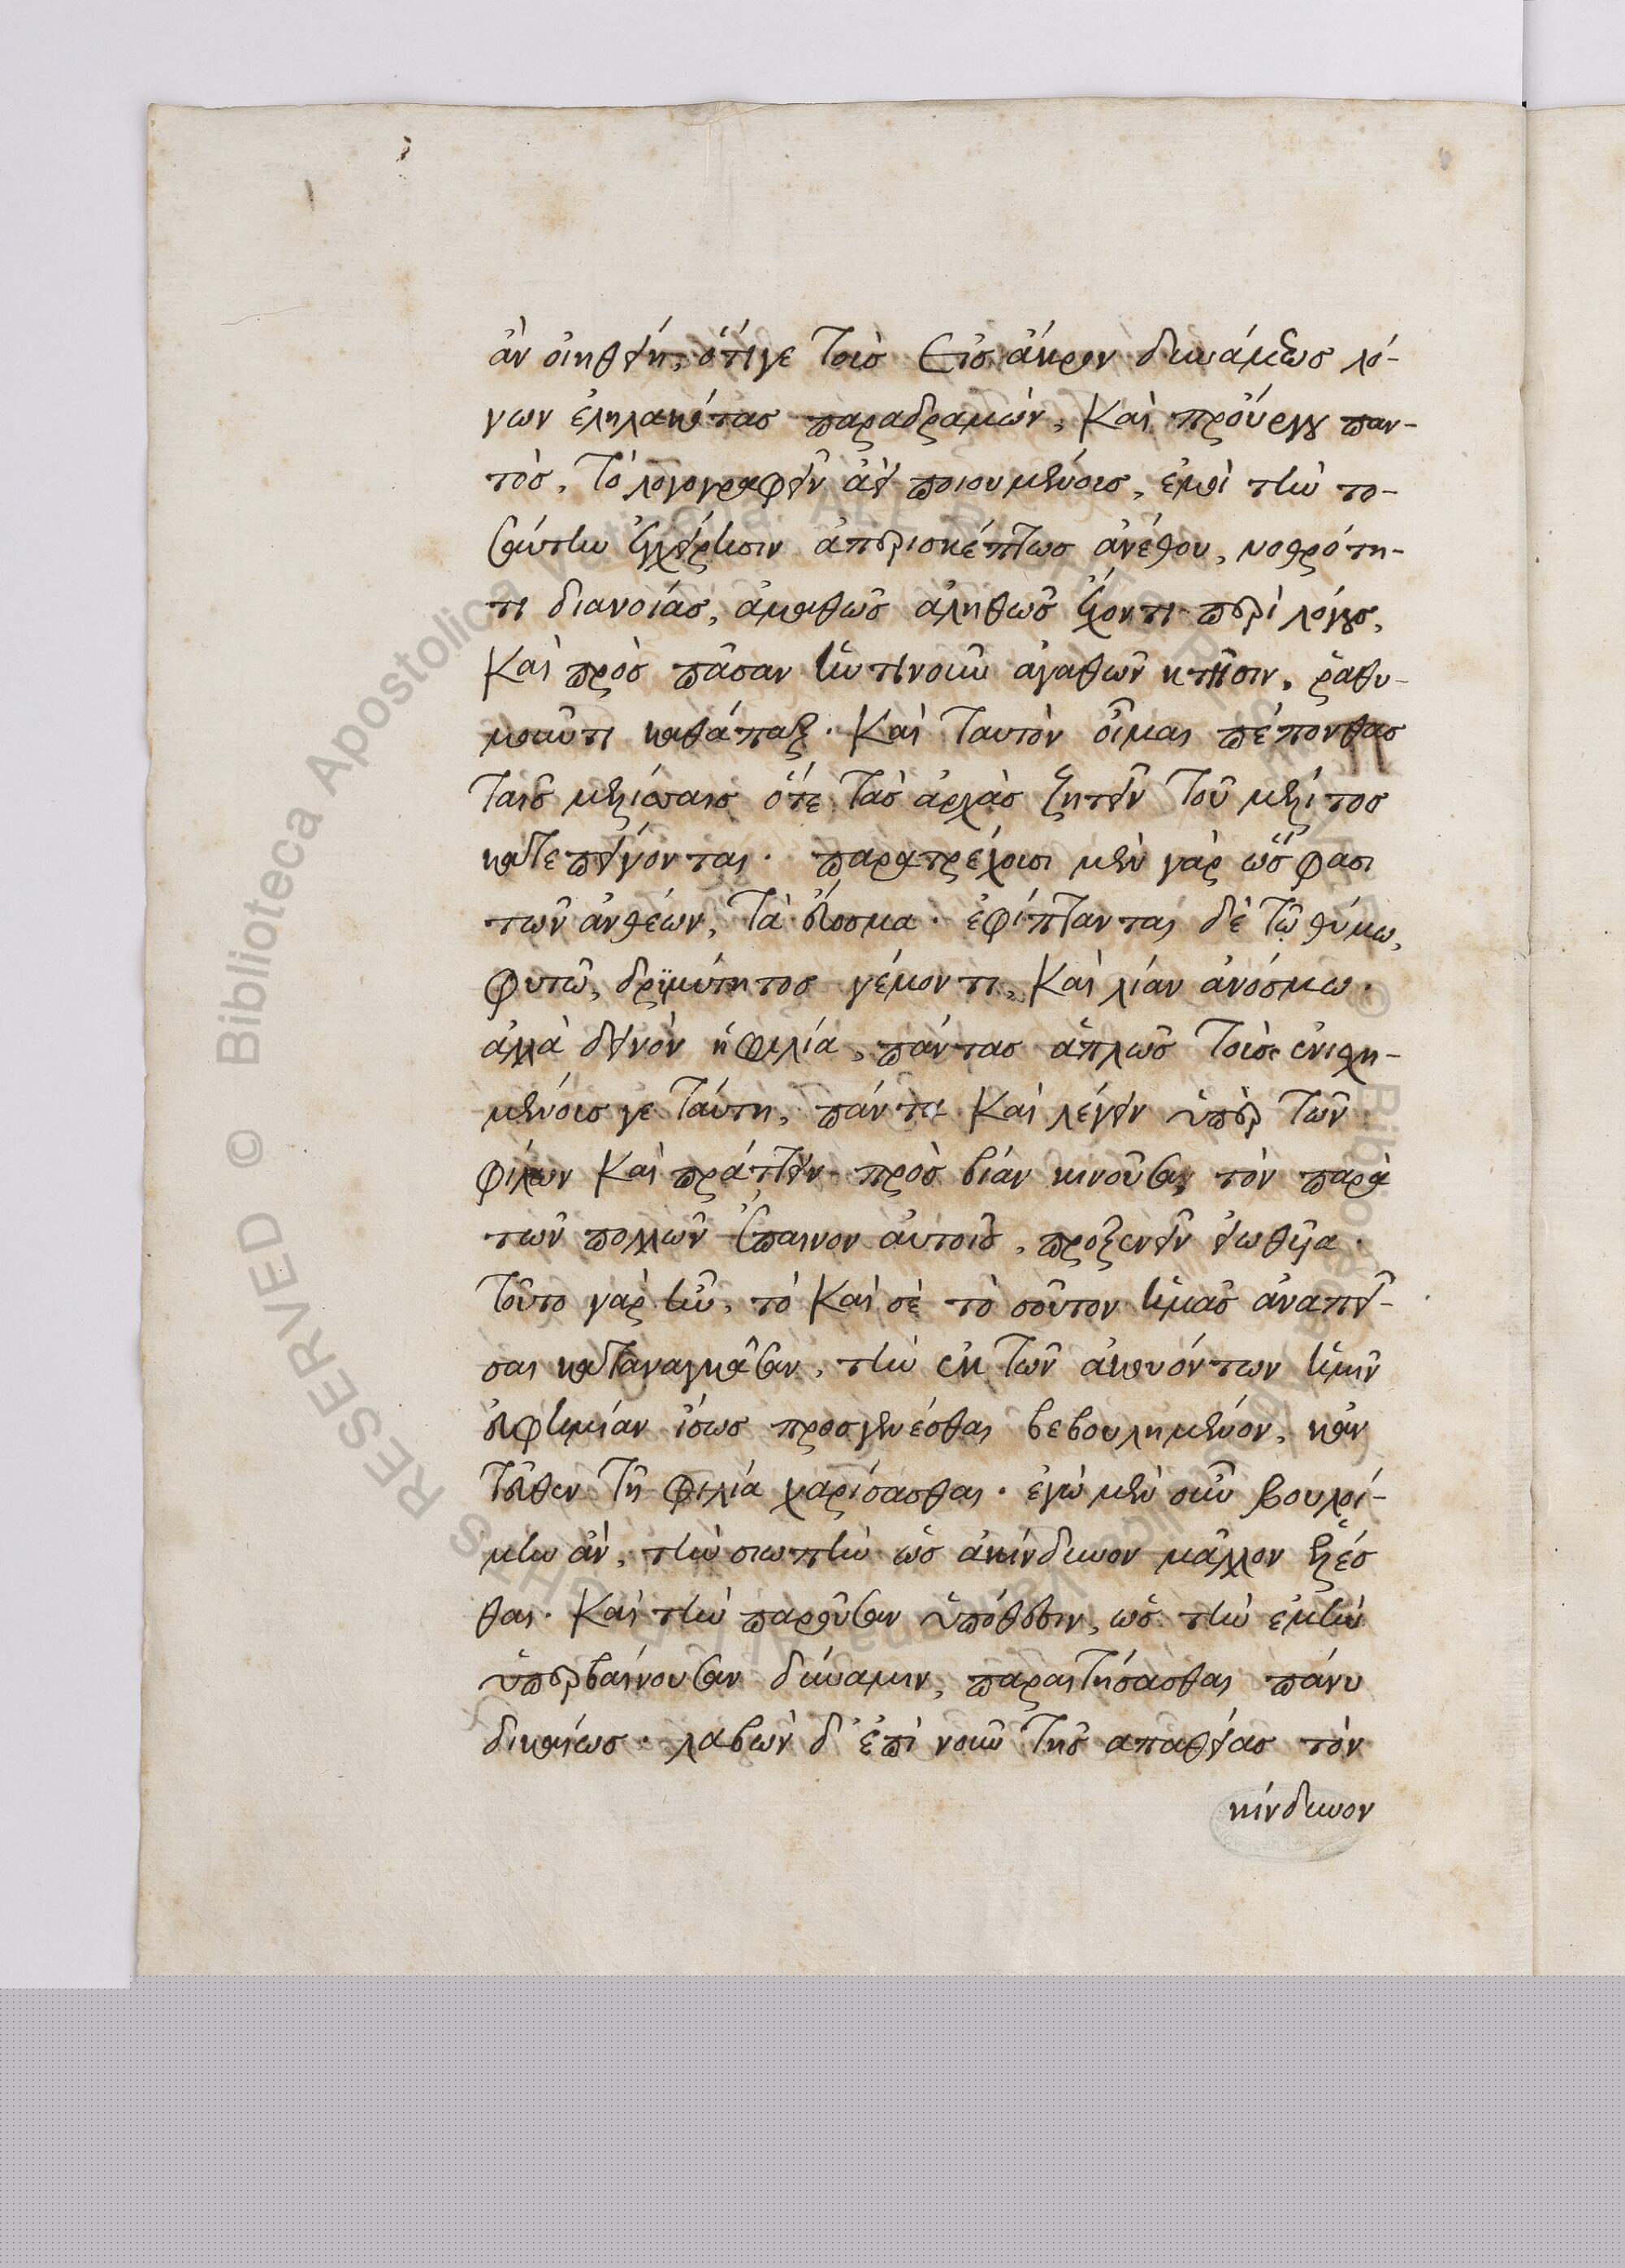 ἂν οἰηθείη, ὅτιγε τοὺς εἰς ἄκρον δυνάμεως λό-
γων ἐληλακότας παραδραμὼν, καὶ προὔργου παν-
τὸς, τὸ λογογραφεῖν ἀεὶ ποιουμένους, ἐμοὶ τὴν το-
σαύτην ἐγχείρησιν ἀπερισκέπτως ἀνέθου, νοθρότη-
τι διανοίας, ἀμαθῶς ἀληθῶς ἔχοντι περὶ λόγους,
καὶ πρὸς πᾶσαν ἡντινοῦν ἀγαθῶν κτῆσιν, ῥαθυ-
μοῦντι καθάπαξ. καὶ ταυτὸν οἶμαι πέπονθας
ταῖς μελίσσαις ὅτε τὰς ἀρχὰς ζητεῖν τοῦ μέλιτος
κατεπείγονται. παρατρέχουσι μὲν γὰρ ὥς φασι
τῶν ἀνθέων, τὰ εὔοσμα. ἐφίπτανται δὲ τῷ θύμω,
φυτῶ, δριμύτητος γέμοντι, καὶ λίαν ἀνόσμω.
ἀλλὰ δεινὸν ἡ φιλία, πάντας ἁπλῶς τοὺς ἐνισχη-
μένους γε ταύτη, πάντα καὶ λέγειν ὑπὲρ τῶν
φίλων καὶ πράττειν πρὸς βίαν κινοῦσα, τὸν παρὰ
τῶν πολλῶν ἔπαινον αὐτοῖς, προξενεῖν εἰωθυῖα.
τοῦτο γὰρ ἦν, τὸ καὶ σὲ τὸ σοῦτον ἡμᾶς ἀναπεῖ-
σαι καταναγκάσαν, τὴν ἐκ τῶν ἀκουόντων ἡμῖν
εὐφημίαν ἴσως προσγενέσθαι βεβουλημένον, κἀν
τεῦθεν τῇ φιλία χαρίσασθαι. ἐγὼ μὲν οὖν βουλοί-
μην ἂν, τὴν σιωπὴν ὡς ἀκίνδυνον μᾶλλον ἑλέσ
θαι. καὶ τὴν παροῦσαν ὑπόθεσιν, ὡς τὴν ἐμὴν
ὑπερβαίνουσαν δύναμιν, παραιτήσασθαι πάνυ
δικαίως. λαβὼν δ᾽ ἐπὶ νοῦν τῆς ἀπαθείας τὸν
κίνδυνον
© Biblioteca Apostolica Vaticana. ALL RIGHTS RESERVED